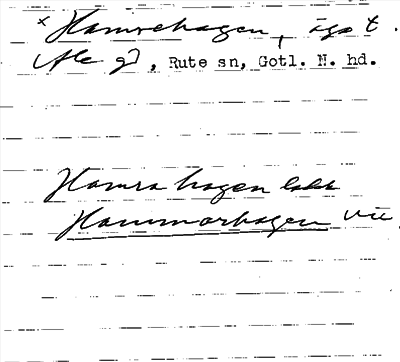 × Hamrehagen, ägot.
Ale gd, Rute sn, Gotl. N. hd.
Hamra hagen
Hammarhagen